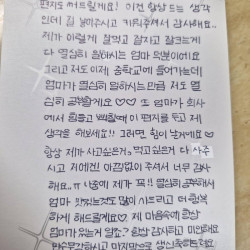 편지도 써드릴게요! 이건 항상 드는 생각
인데 길 낳아주시고 키워주셔서 감사해요..
제가 이렇게 잘먹고 잘자고 잘크는게
다 열심히 일하시는 엄마 덕분이에요
그리고 저도 이제 중학교에 들어가는데
엄마가 열심히 일하시는만큼 저도 열
심히 공부할게요 ♡♡ 또 엄마가 회사
에서 힘들고 빡칠때 이 편지를 두고 제
생각을 해보세요!! 그러면 힘이 날거에요♡
항상 제가 사고싶은거, 먹고싶은거 다 사주
시고 저에겐 아낌없이 주셔서 너무 감사
해요..ㅠ 나중에 제가 꼭!! 열심히 공부해서
엄마 맛있는것도 많이 사드리고 더 행복
하게 해드릴게요♡ 제 마음속에 항상
엄마가 있는거 알죠? 항상 감사하고 미안해요
만수무강하시고 마지막으로 생신 축하드려요